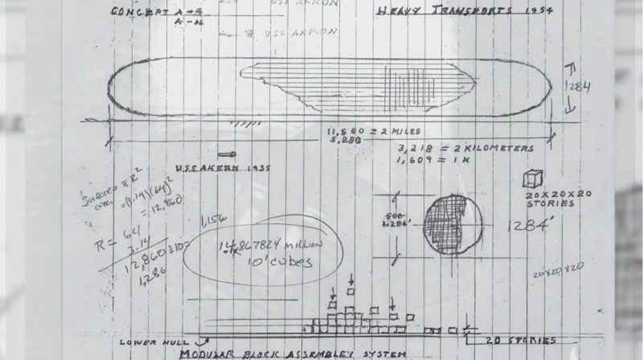 USS AKRON
CONCEPT A-B
A-26
HEAVY TRANSPORTS 1954
USS AKRON
1284
11,560 = 2 MILES
5,280
3,218 = 2 KILOMETERS
1,609 = 1 K
USS AKERN 1935
20X20X20
STORIES
Surface = π R²
= (3.14)(64)²
= 12,860
R = 64
3.14
12,860
1,286
1,156
14.867824 million
10' cubes
1,284'
1284'
20x20x20
LOWER HULL
20 STORIES
MODULAR BLOCK ASSEMBLEY SYSTEM